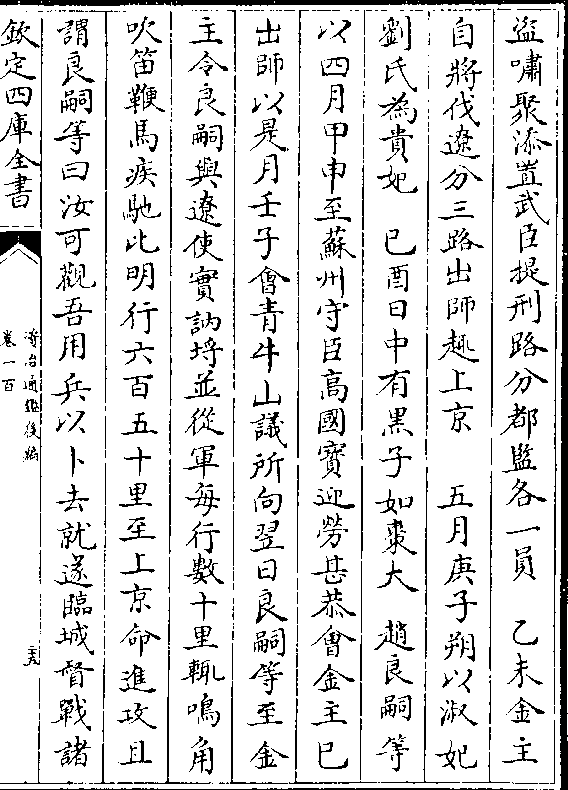 盗嘯聚添置武臣提刑路分都監各一員　乙未金主
自將伐遼分三路出師趣上京　五月庚子朔以淑妃
劉氏為貴妃　己酉日中有黒子如棗大　趙良嗣等
以四月甲申至蘇州守臣髙國寳迎勞甚恭會金主已
出師以是月壬子會青牛山議所向翌日良嗣等至金
主令良嗣與遼使實訥埒並從軍每行數十里輒鳴角
吹笛鞭馬疾馳比明行六百五十里至上京命進攻且
謂良嗣等曰汝可觀吾用兵以卜去就遂臨城督戰諸
欽定四庫全書
資治通鑑後編
卷一百